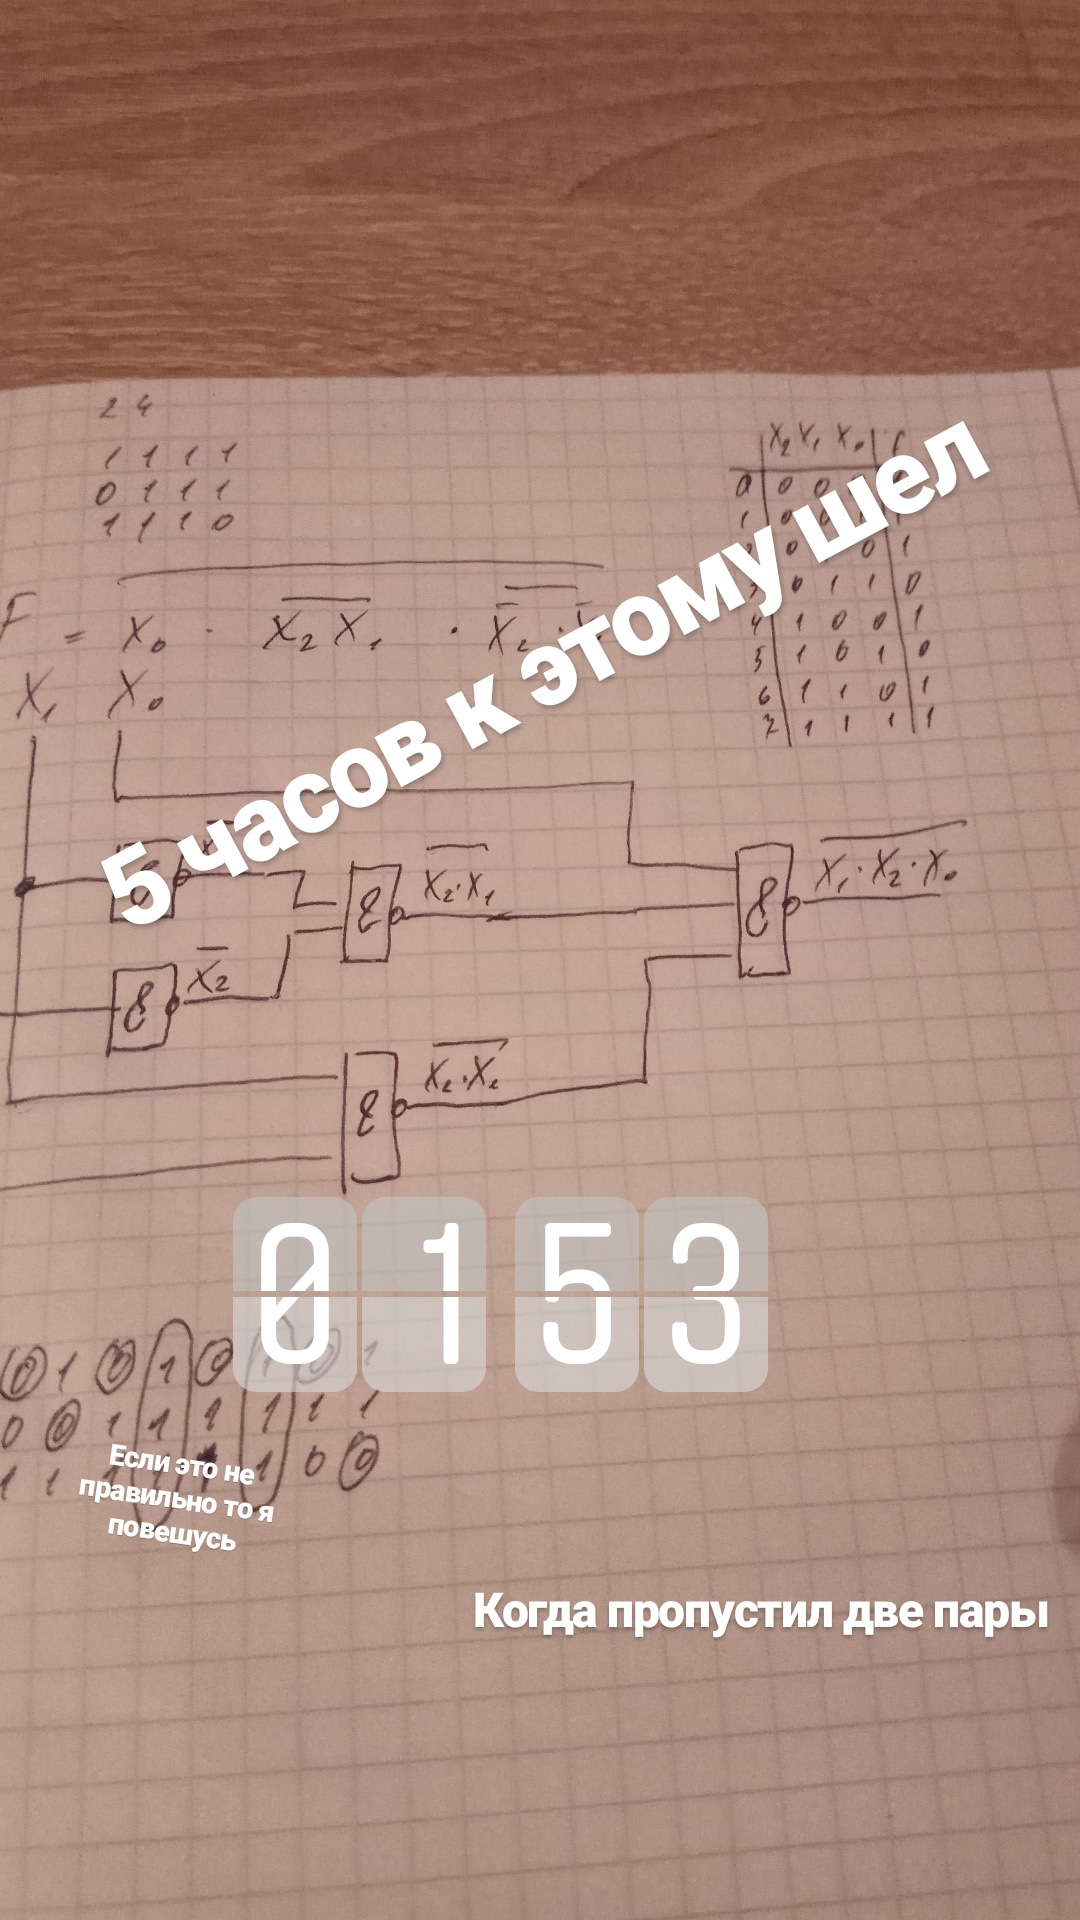 2 4
1 1 1 1
0 1 1 1
1 1 1 0
X₂ X₁ X₀
0 0 0
1 0 0 1
0 0 1
0 1 1 0
4 1 0 0 1
5 1 0 1 0
6 1 1 0 1
7 1 1 1 1
5 часов к этому шел
F = X₀ · X̅₂X̅₁ · X̅₂ ·
X₁ X₀
&
X̅₂
&
&
X̅₂·X̅₁
&
&
X̅₁·X̅₂·X̅₀
01 53
0 1 0 1 0 1 0 1
0 0 1 1 1 1 1 1
1 1 1 0 0
Если это не
правильно то я
повешусь
Когда пропустил две пары